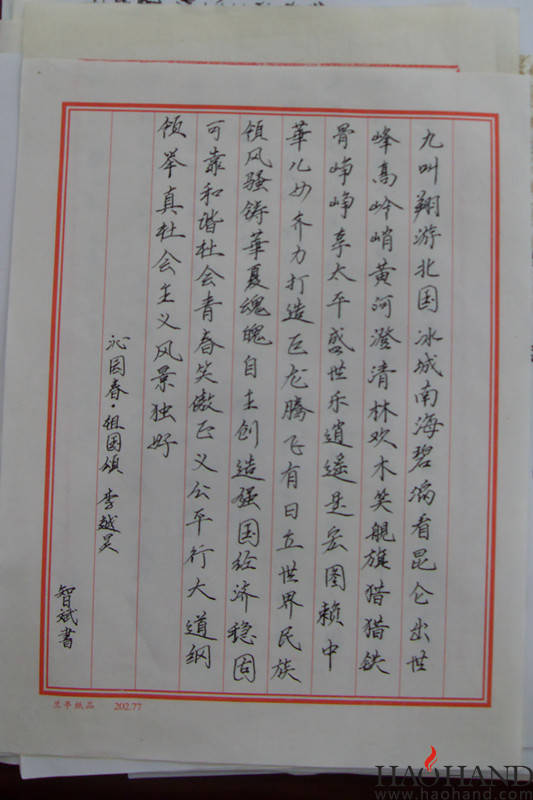 九叫翔游北国冰城南海碧涛看昆仑出世
峰高岭峭黄河澄清林欢木笑舰旗猎猎铁
骨峥峥享太平盛世乐逍遥是宏图赖中
華儿女齐力打造巨龙腾飞有日立世界民族
领风骚铸華夏魂魄自主创造强国经济稳固
可靠和谐社会青春笑傲正义公平行大道纲
领举真社会主义风景独好
沁园春·祖国颂 李越昊
智斌書
兰亭纸品 202.77
HAOHAND
www.haohand.com